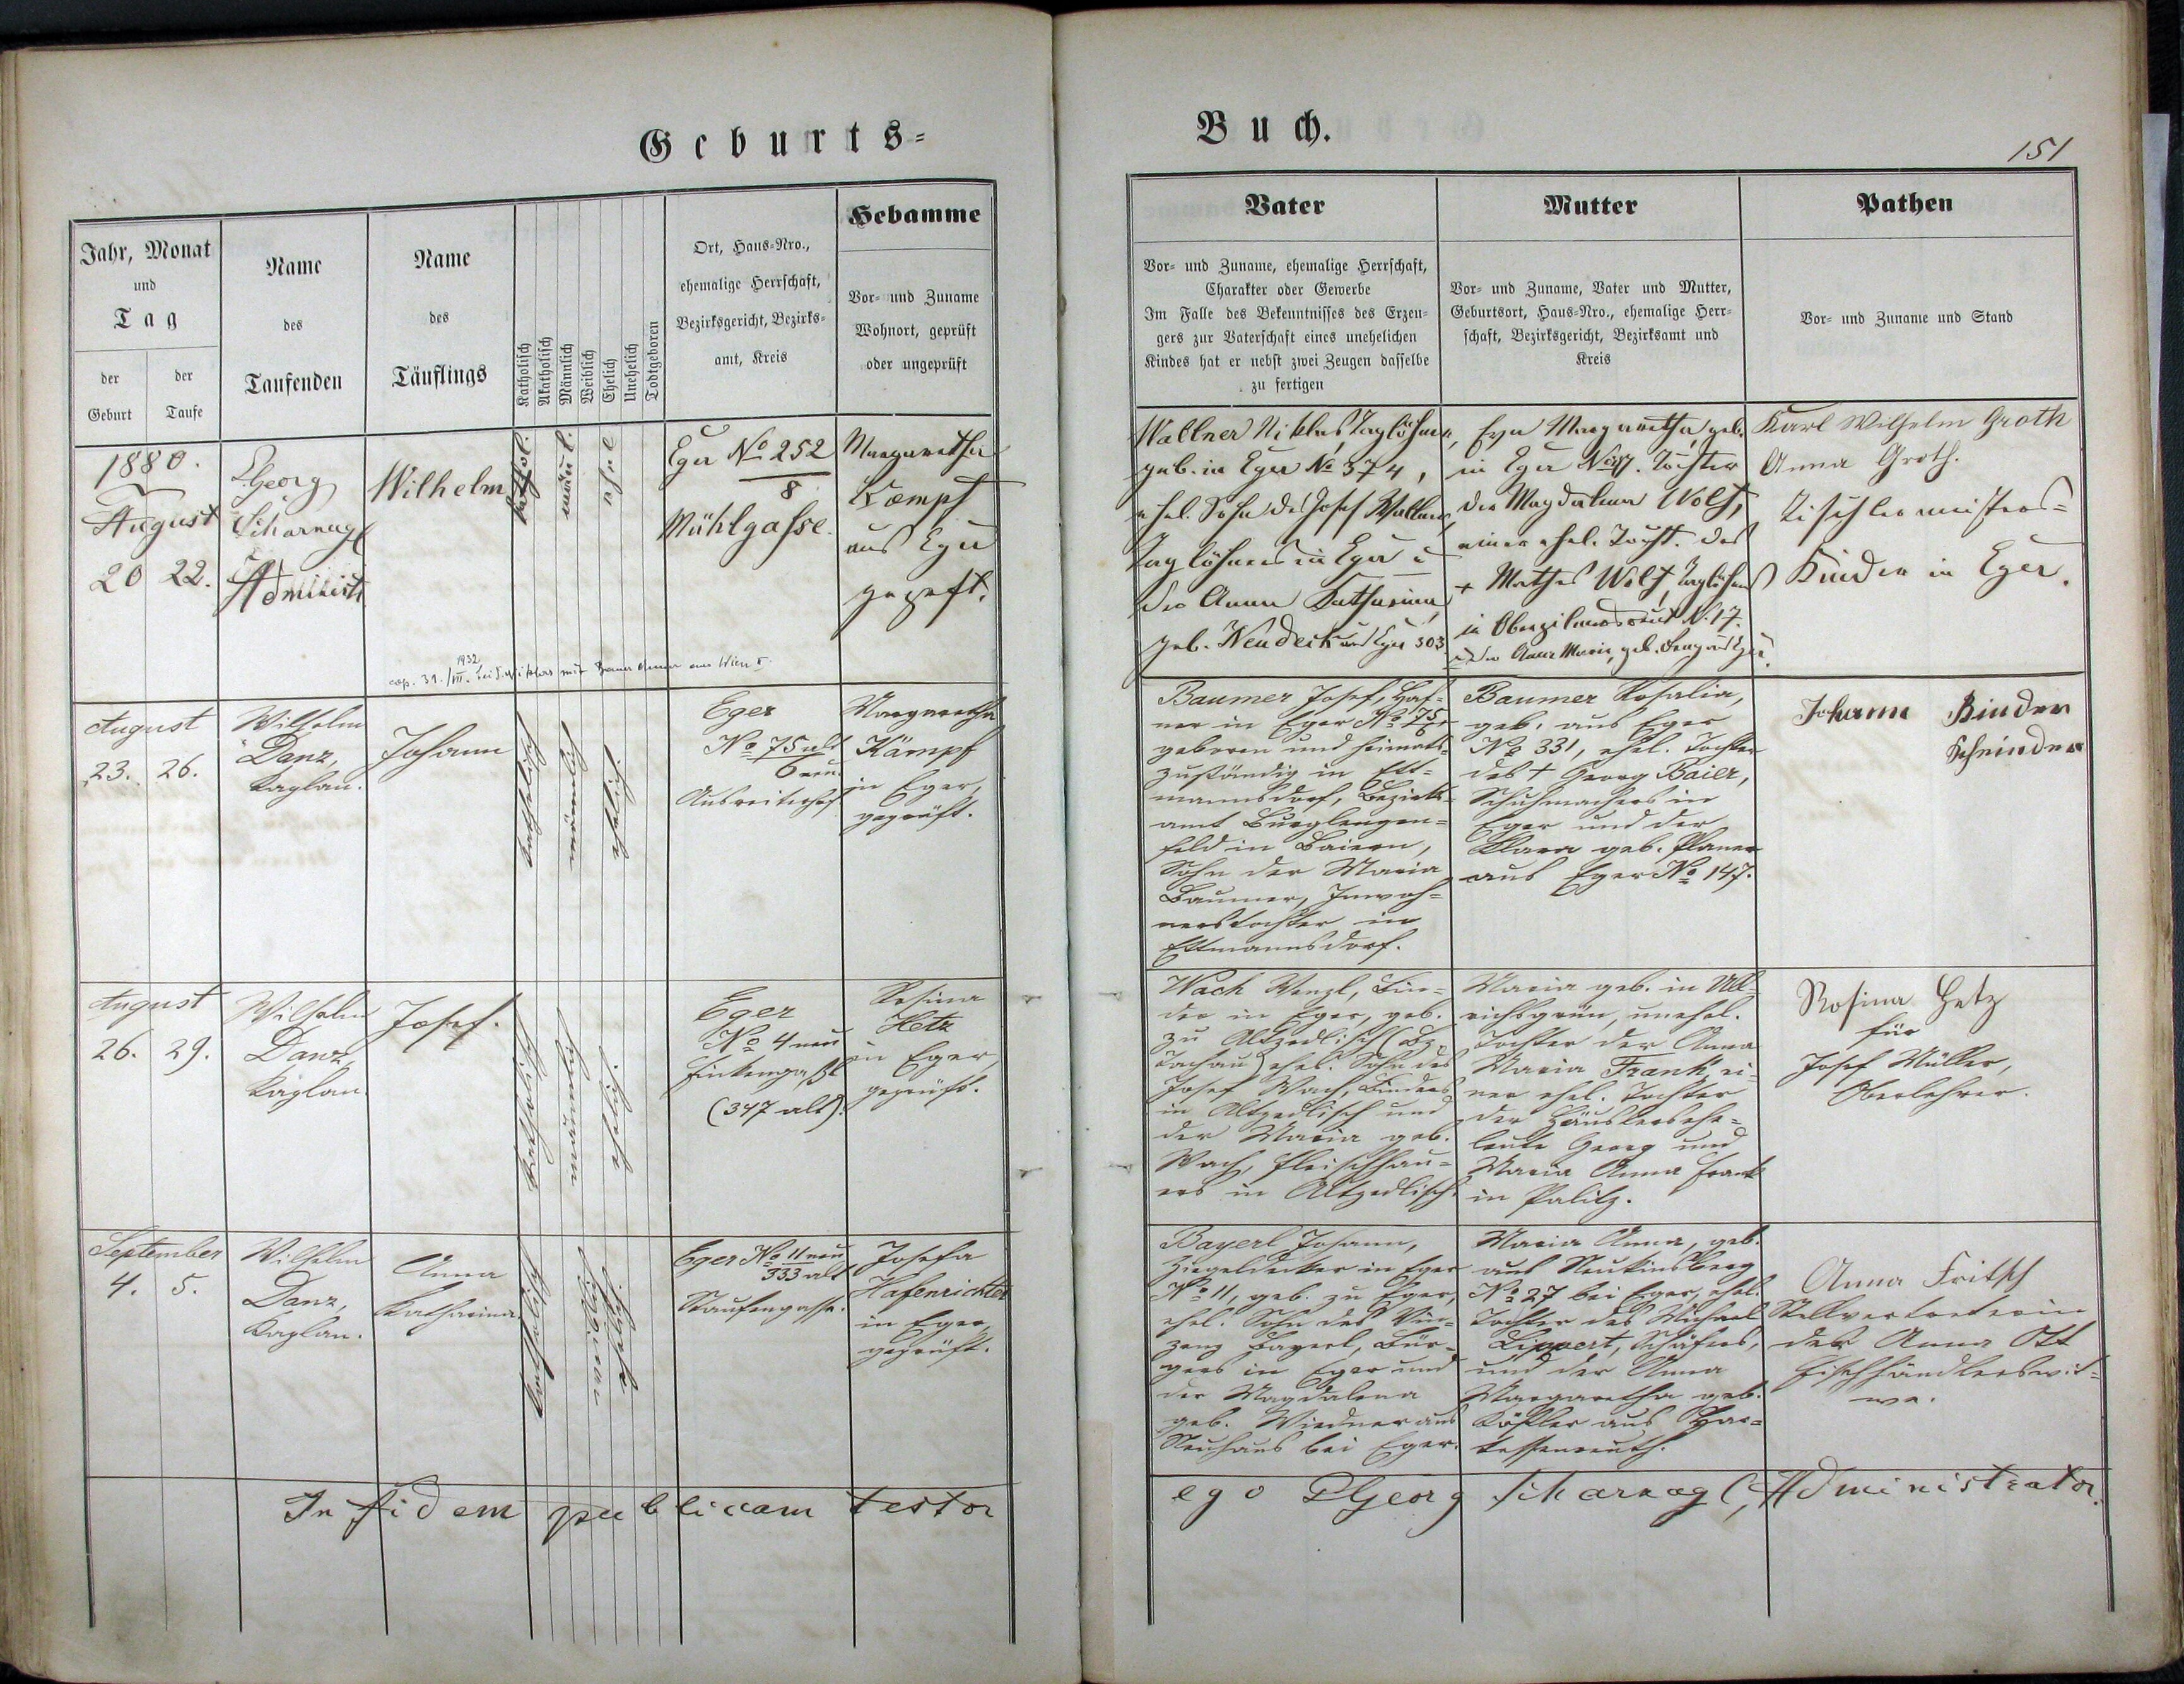 Geburts-
Buch.
151
Jahr, Monat
und
Tag
der
Geburt
der
Taufe
Name
des
Taufenden
Name
des
Täuflings
Katholisch
Akatholisch
Männlich
Weiblich
Ehelich
Unehelich
Todtgeboren
Ort, Haus-Nro.,
ehemalige Herrschaft,
Bezirksgericht, Bezirks-
amt, Kreis
Hebamme
Vor- und Zuname
Wohnort, geprüft
oder ungeprüft
Vater
Vor- und Zuname, ehemalige Herrschaft,
Charakter oder Gewerbe
Im Falle des Bekenntnisses des Erzeu-
gers zur Vaterschaft eines unehelichen
Kindes hat er nebst zwei Zeugen dasselbe
zu fertigen
Mutter
Vor- und Zuname, Vater und Mutter,
Geburtsort, Haus-Nro., ehemalige Herr-
schaft, Bezirksgericht, Bezirksamt und
Kreis
Pathen
Vor- und Zuname und Stand
1880.
August
20 22.
Georg
Scharnagl
Administr
Wilhelm
kathol.
männl.
ehel
Eger No 252
8
Mühlgasse.
Margaretha
Kaempf
aus Eger
geprft.
Wallner Niklas, Taglöhner,
geb. in Eger No 374,
ehel. Sohn des Josef Wallner,
Taglöhners in Eger u
der Anna Katharina,
geb. Neudeck aus Eger 303
Eva Margaretha, geb.
in Eger No 47. Tochter
der Magdalena Wolf,
einer ehel. Tocht. des
+ Mathes Wolf, Taglöhners
in N. 17.
u. der Anna Maria, geb.
Karl Wilhelm Groth
Anna Groth.
Tischlermeisters-
Kinder in Eger.
1932
cop. 31./III. bei S. Niklas mit Anna aus Wien
August
23. 26.
Wilhelm
Danz,
Kaplan.
Johann
katholisch
männlich
ehelich.
Eger
No 75 alt
6 neu
Margaretha
Kämpf
in Eger,
geprüft.
Baumer Josef, Haf-
ner in Eger No 75/6
geboren und heimats-
zuständig in Ett-
mannsdorf, Bezirks-
amt Burglengen-
feld in Baiern,
Sohn der Maria
Baumer, Inwoh-
nerstochter in
Ettmannsdorf.
Baumer Rosalia,
geb. aus Eger
No 331, ehel. Tochter
des + Georg Baier,
Schuhmachers in
Eger und der
Klara geb. Planer
aus Eger No 147.
Johann Binder
Schneider
August
26. 29.
Wilhelm
Danz,
Kaplan.
Josef.
katholisch
männlich
ehelich.
Eger
No 4 neu
(347 alt).
Rosina
Hetz
in Eger,
geprüft.
Wach Wenzl, Bin-
der in Eger, geb.
zu Altzedlisch (Bz.
Tachau) ehel. Sohn des
Josef Wach, Binders
in Altzedlisch und
der Maria geb.
Wach, Fleischhau-
ers in Altzedlisch.
Maria geb. in Ull-
richsgrün, unehel.
Tochter der Anna
Maria Frank, ei-
ner ehel. Tochter
der Häuslersehe-
leute Georg und
Maria Anna Frank
in Palitz.
Rosina Hetz
für
Josef Müller,
Oberlehrer.
September
4. 5.
Wilhelm
Danz,
Kaplan.
Anna
Katharina
katholisch
weiblich
ehelich
Eger No 11 neu
333 alt
Josefa
Hafenrichter
in Eger,
geprüft.
Bayerl Johann,
Ziegeldecker in Eger
No 11, geb. zu Eger,
ehel. Sohn des Vin-
zenz Bayerl, Bür-
gers in Eger und
der Magdalena
geb. Wiedner aus
Neuhaus bei Eger.
Maria Anna, geb.
aus Neukinsberg
No 27 bei Eger, ehel.
Tochter des Michael
Lippert, Schäfers,
und der Anna
Margaretha geb.
Köstler aus Har-
tessenreuth.
Anna Fritsch
Stellvertreterin
der Anna Ott
Fischhändlerswit-
we.
In fidem publicam testor
ego PGeorg Scharnagl, Administrator.